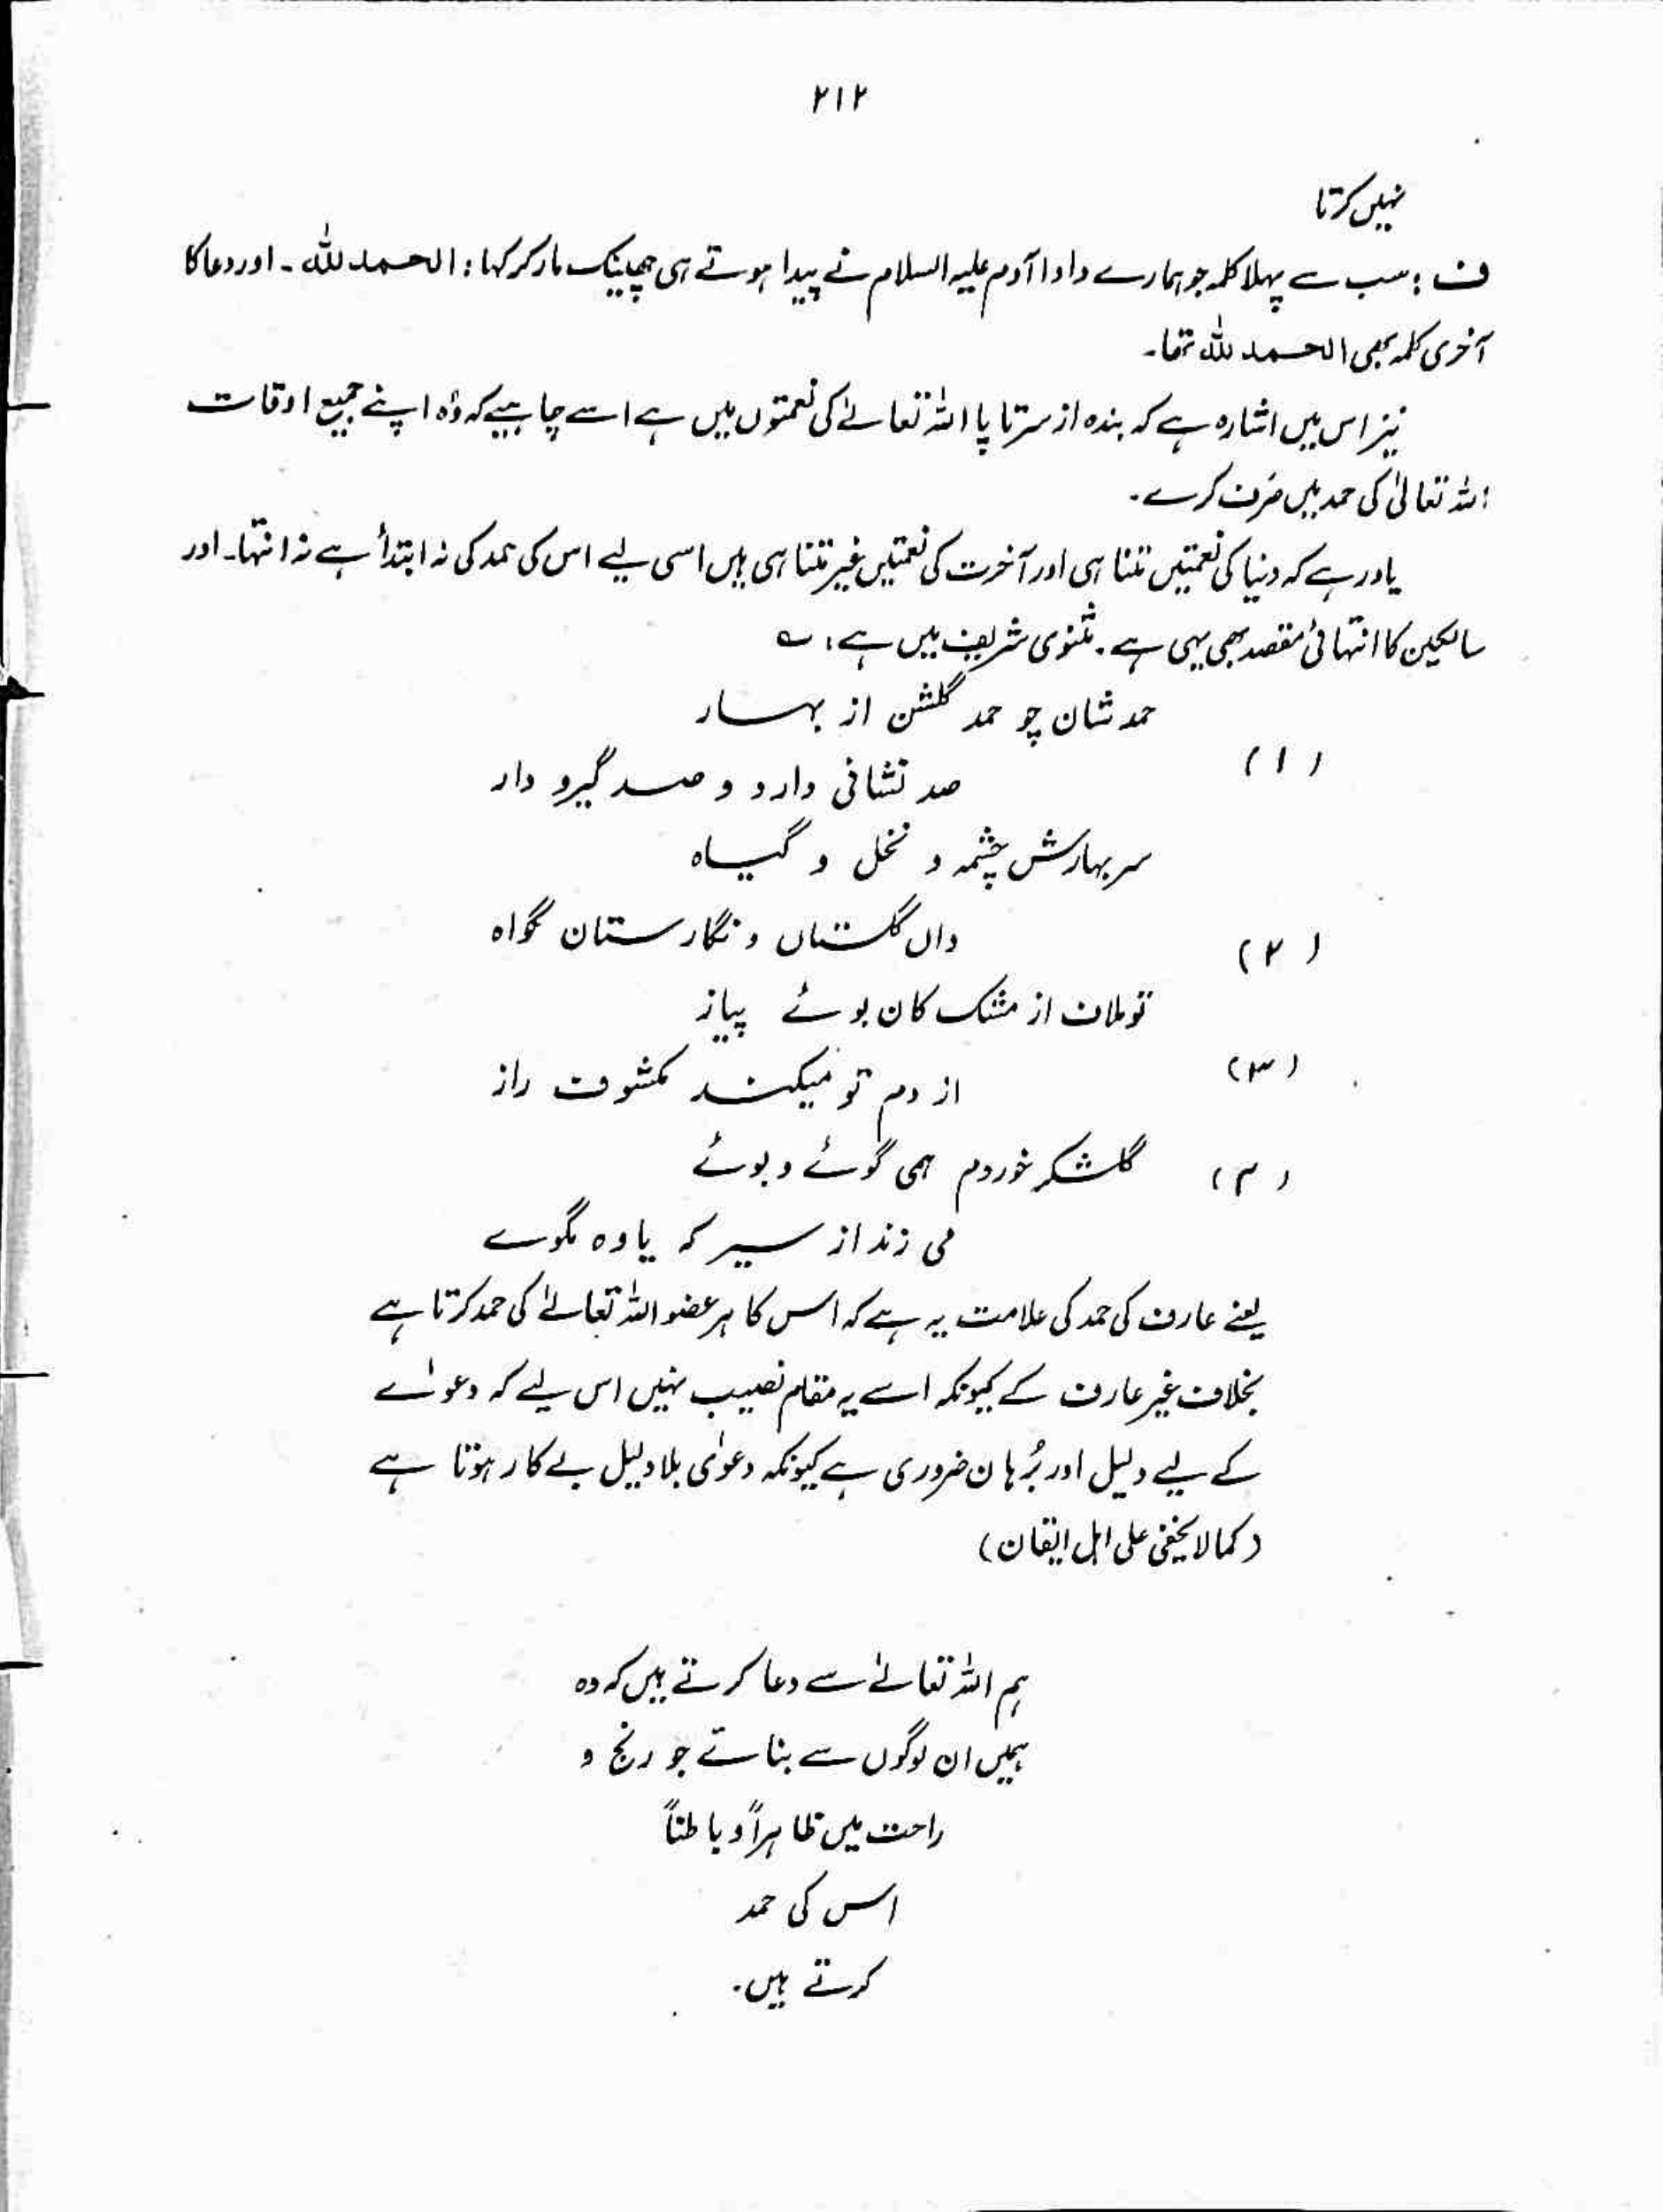 ۲۱۲
نہیں کرتا
ف : سب سے پہلا کلمہ جو ہمارے دادا آدم علیہ السلام نے پیدا ہوتے ہی چھینک مار کر کہا : الحمد للہ ۔ اور دعا کا
آخری کلمہ بھی الحمد للہ تھا۔
نیز اس میں اشارہ ہے کہ بندہ از سر تا پا اللہ تعالےٰ کی نعمتوں میں ہے اسے چاہیے کہ وُہ اپنے جمیع اوقات
اللہ تعالیٰ کی حمد میں صَرف کرے۔
یاد رہے کہ دنیا کی نعمتیں متناہی اور آخرت کی نعمتیں غیر متناہی ہیں اسی لیے اس کی حمد کی نہ ابتدأ ہے نہ انتہا۔ اور
سالکین کا انتہائی مقصد بھی یہی ہے۔ مثنوی شریف میں ہے : ؎
حمد شان چو حمد گلشن از بہار
(۱)
صد نشانی دارد و صد گیرو دار
سر بہارش چشمہ و نخل و گیاہ
واں گلستاں و نگارستان گواہ
(۲)
تو ملاف از مشک کان بوئے پیاز
از دم تو میکند مکشوف راز
(۳)
(۴) گلشکر خوردم ہمی گوئے و بوئے
می زند از سیر کہ یاوہ مگوے
یعنے عارف کی حمد کی علامت یہ ہے کہ اس کا ہر عضو اللہ تعالےٰ کی حمد کرتا ہے
بخلاف غیر عارف کے کیونکہ اسے یہ مقام نصیب نہیں اس لیے کہ دعوےٰ
کے لیے دلیل اور بُرہان ضروری ہے کیونکہ دعوٰی بلا دلیل بے کار ہوتا ہے
(کما لا یخفی علی اہل ایقان)
ہم اللہ تعالےٰ سے دعا کرتے ہیں کہ وہ
ہمیں ان لوگوں سے بنائے جو رنج و
راحت میں ظاہراً و باطناً
اس کی حمد
کرتے ہیں۔